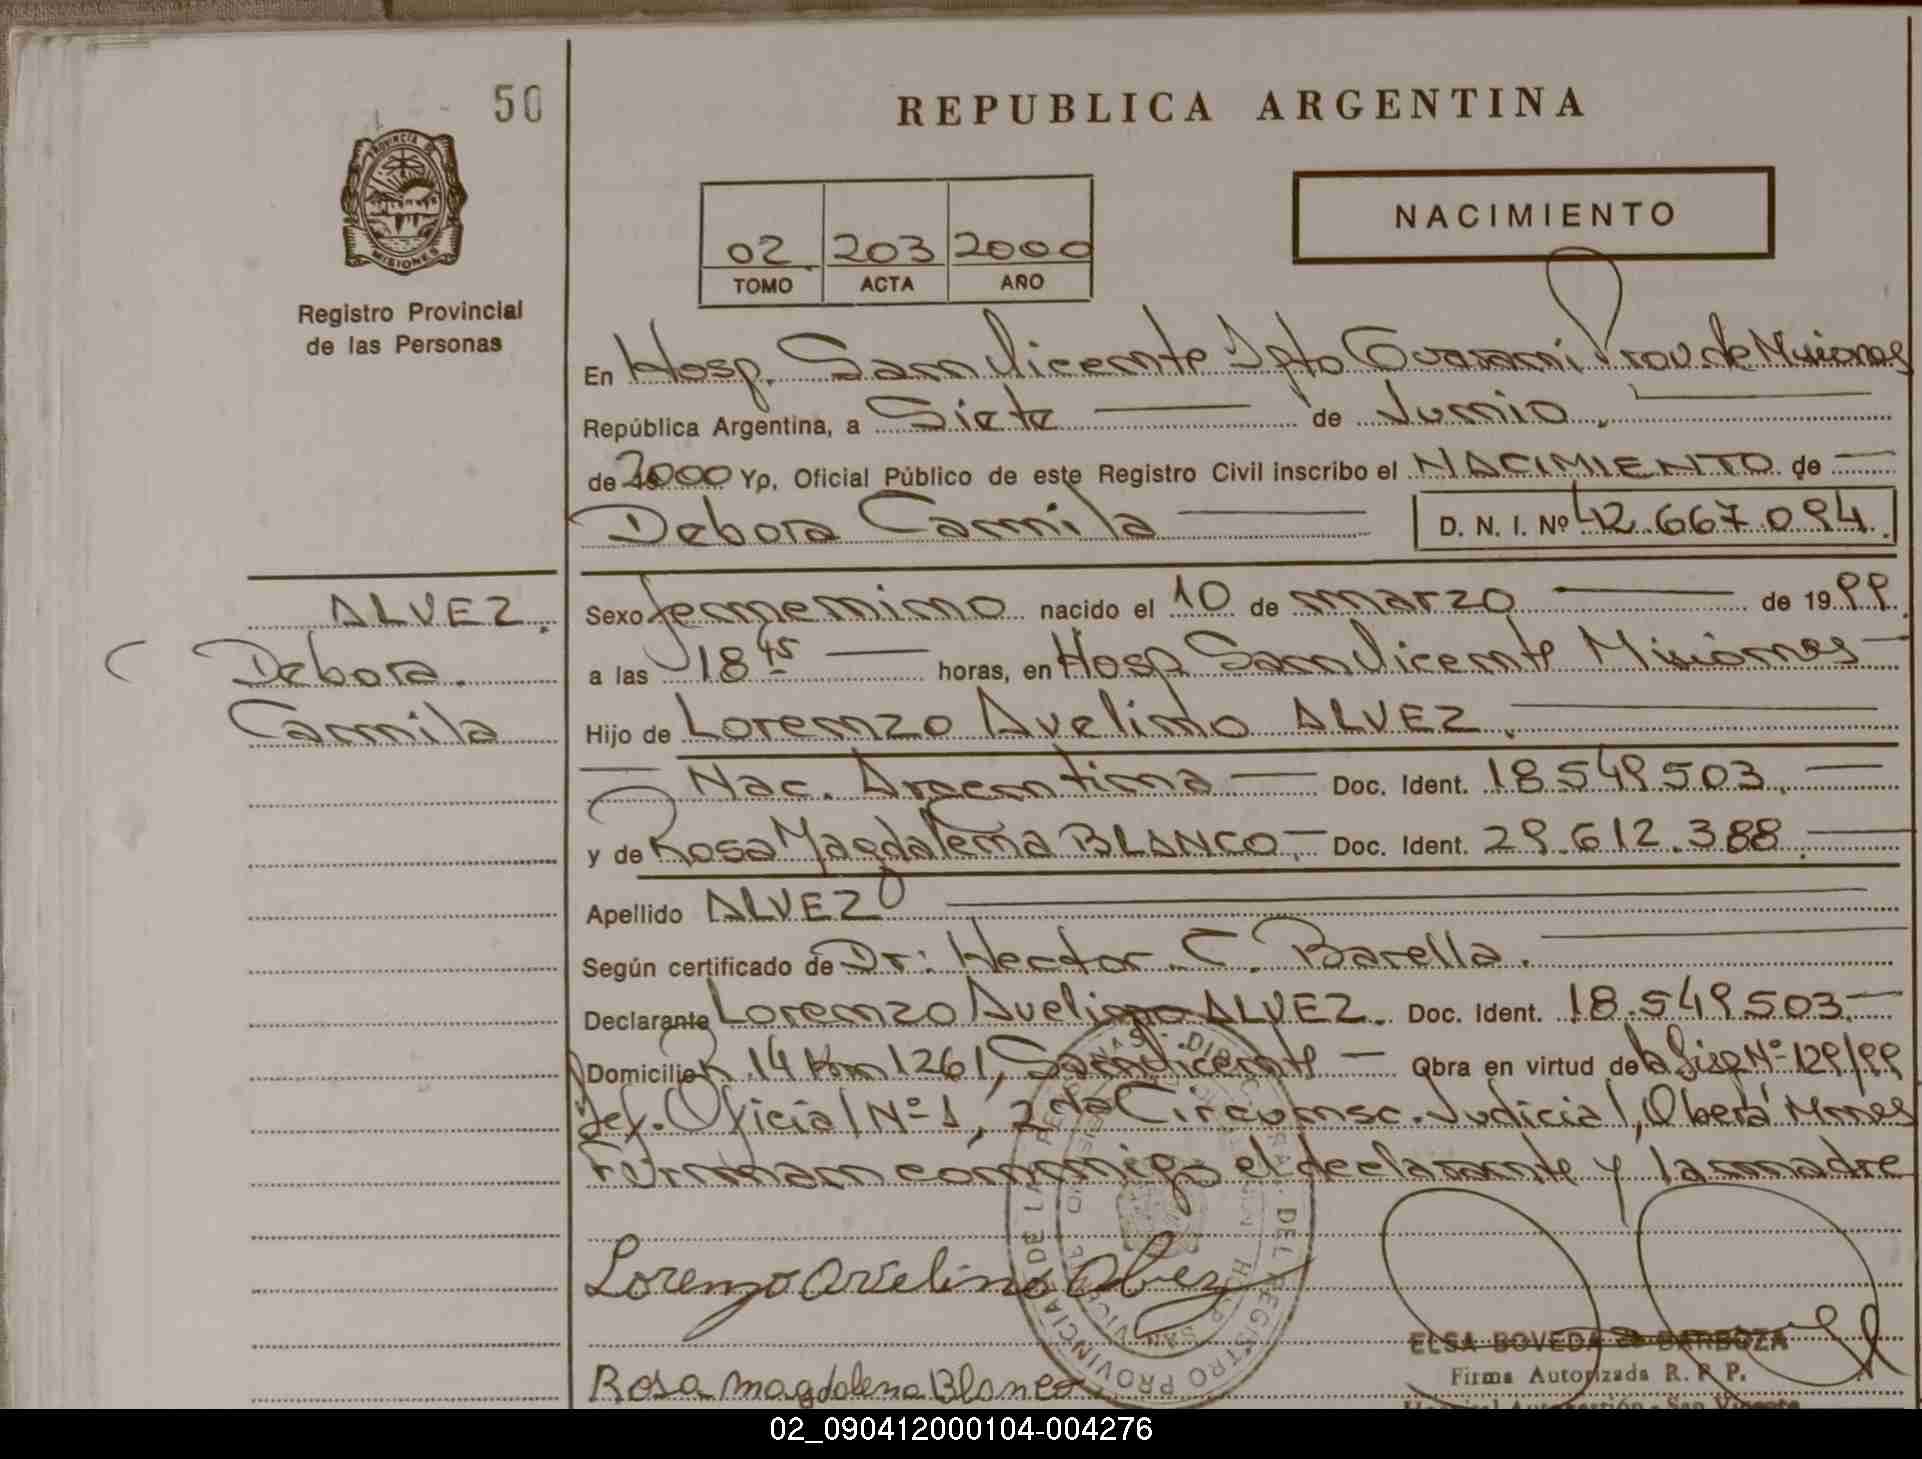 50
REPUBLICA ARGENTINA
PROVINCIA DE
MISIONES
Registro Provincial
de las Personas
02 203 2000
TOMO ACTA AÑO
NACIMIENTO
En Hosp. San Vicente Dpto Guaraní Prov. de Misiones
República Argentina, a Siete de Junio.
de 2000 Yo, Oficial Público de este Registro Civil inscribo el NACIMIENTO de
Debora Camila D. N. I. Nº 42.667.094.
ALVEZ.
Debora.
Camila
Sexo femenino nacido el 10 de marzo de 1999.
a las 18 45 horas, en Hosp San Vicente Misiones
Hijo de Lorenzo Avelino ALVEZ.
Nac. Argentina Doc. Ident. 18.549.503.
y de Rosa Magdalena BLANCO, Doc. Ident. 29.612.388.
Apellido ALVEZ
Según certificado de Dr: Hector C. Barella.
Declarante Lorenzo Avelino ALVEZ. Doc. Ident. 18.549.503.
Domicilio R. 14 Km 1261, San Vicente Obra en virtud de la Disp Nº 129/99
Def. Oficial Nº 1, 2da Circunsc. Judicial, Oberá Mnes
Firman conmigo el declarante y la madre
Lorenzo Avelino Alvez
Rosa magdalena Blanco
ELSA BOVEDA de BARBOZA
Firma Autorizada R. P. P.
Hospital Autogestión - San Vicente
02_090412000104-004276